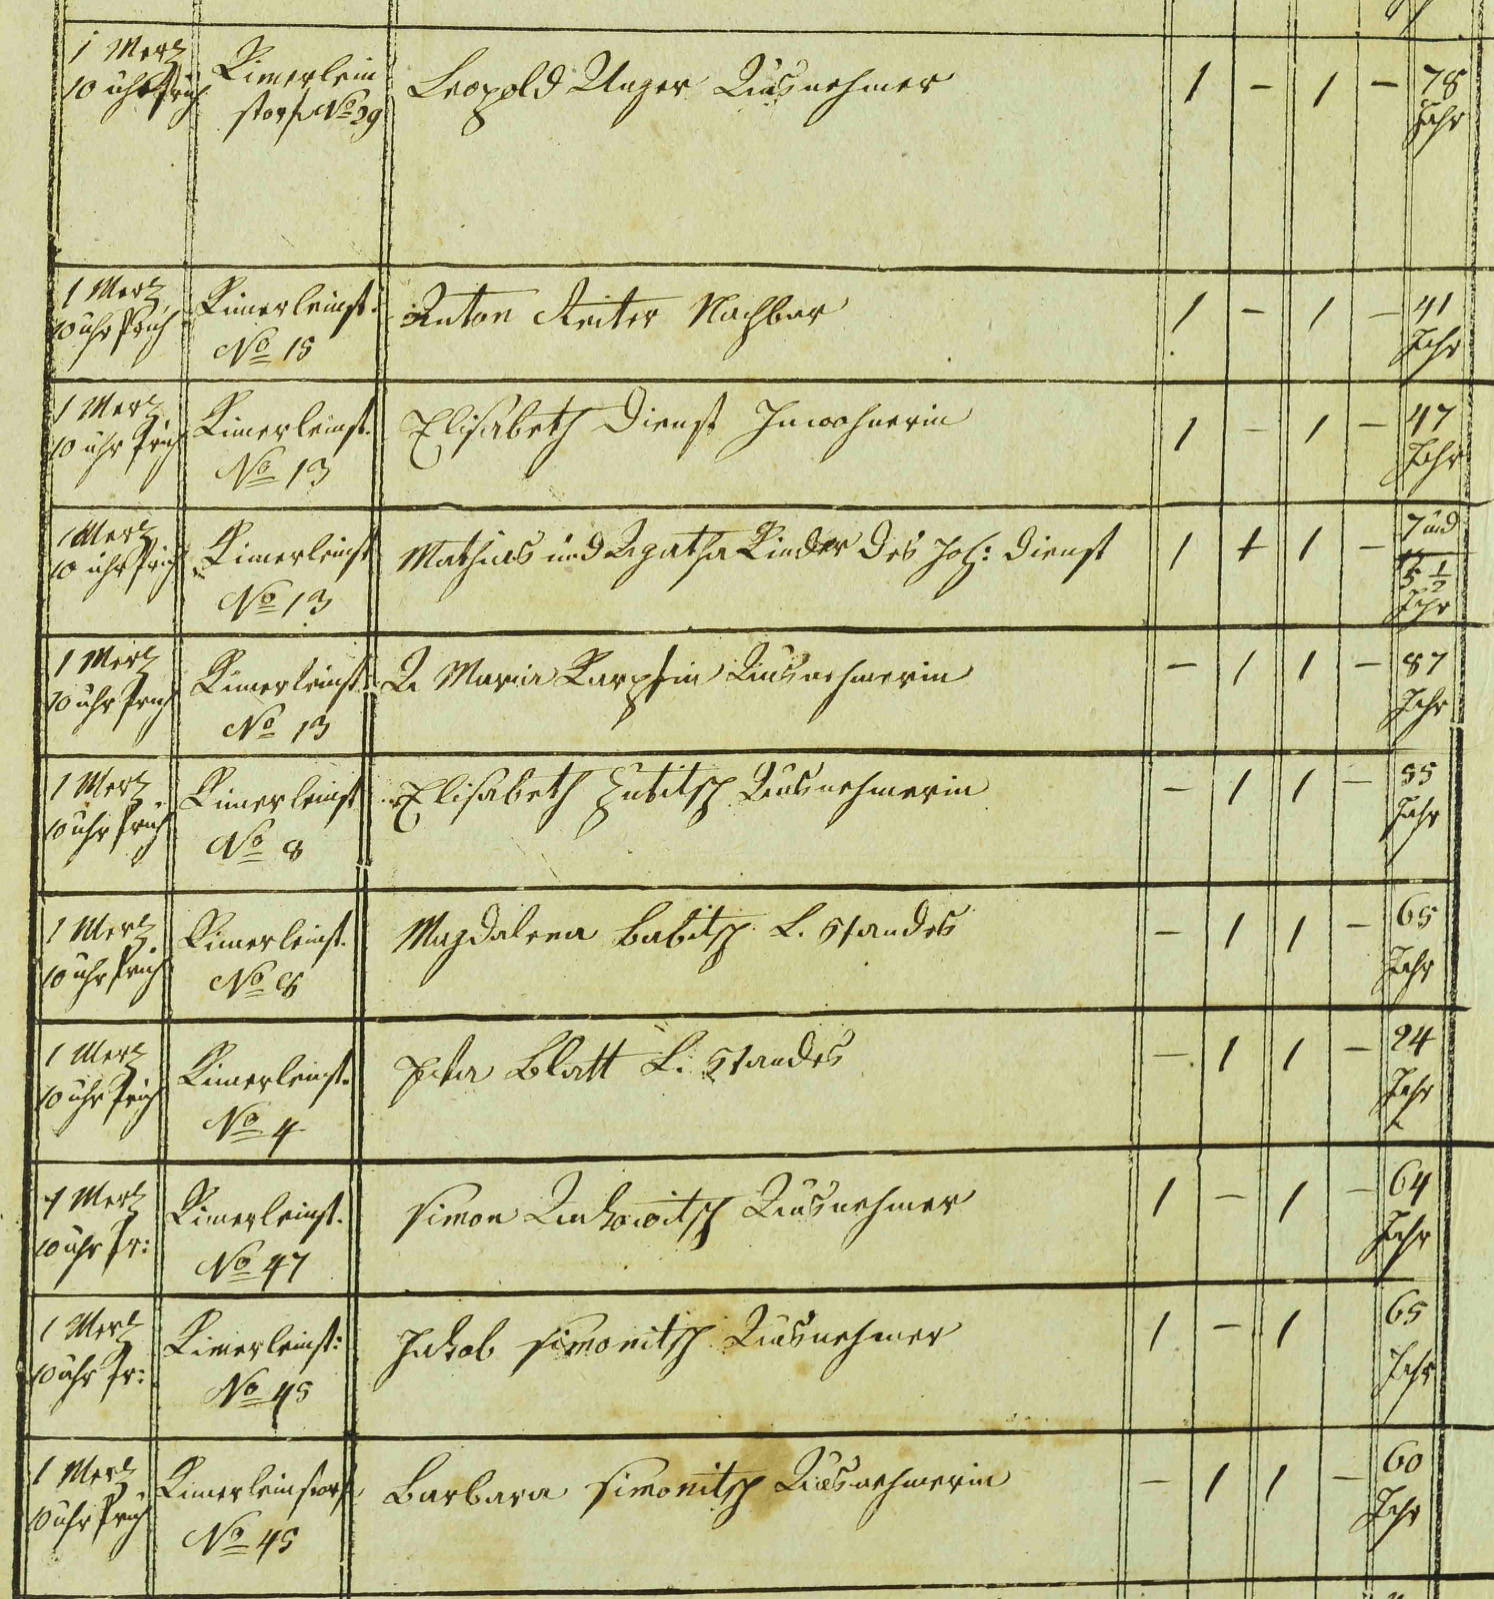 1 Merz
10 uhr Früh
Kimerlein
storf No 29
Leopold Unger Ausnehmer
1 – 1 – 78
Jahr
1 Merz
10 uhr Früh
Kimerleinst.
No 15
Anton Reiter Nachbar
1 – 1 – 41
Jahr
1 Merz
10 uhr Früh
Kimerleinst.
No 13
Elisabeth Dienst Inwohnerin
1 – 1 – 47
Jahr
1 Merz
10 uhr Früh
Kimerleinst
No 13
Mathias und Agatha Kinder des Joh: Dienst
1 + 1 – 7 und
5 1/2
Jahr
1 Merz
10 uhr Früh
Kimerleinst.
No 13
A Maria Karpfin Ausnehmerin
– 1 1 – 87
Jahr
1 Merz
10 uhr Früh
Kimerleinst
No 8
Elisabeth Ausnehmerin
– 1 1 – 55
Jahr
1 Merz
10 uhr Früh
Kimerleinst.
No 8
Magdalena Babitsch L. Standes
– 1 1 – 65
Jahr
1 Merz
10 uhr Früh
Kimerleinst.
No 4
Blatt L. Standes
– 1 1 – 24
Jahr
1 Merz
10 uhr Fr:
Kimerleinst.
No 47
Simon Ausnehmer
1 – 1 – 64
Jahr
1 Merz
10 uhr Fr:
Kimerleinst:
No 45
Jakob Simonitsch Ausnehmer
1 – 1 65
Jahr
1 Merz
10 uhr Früh
Kimerleinstorf
No 45
Barbara Simonitsch Ausnehmerin
– 1 1 – 60
Jahr